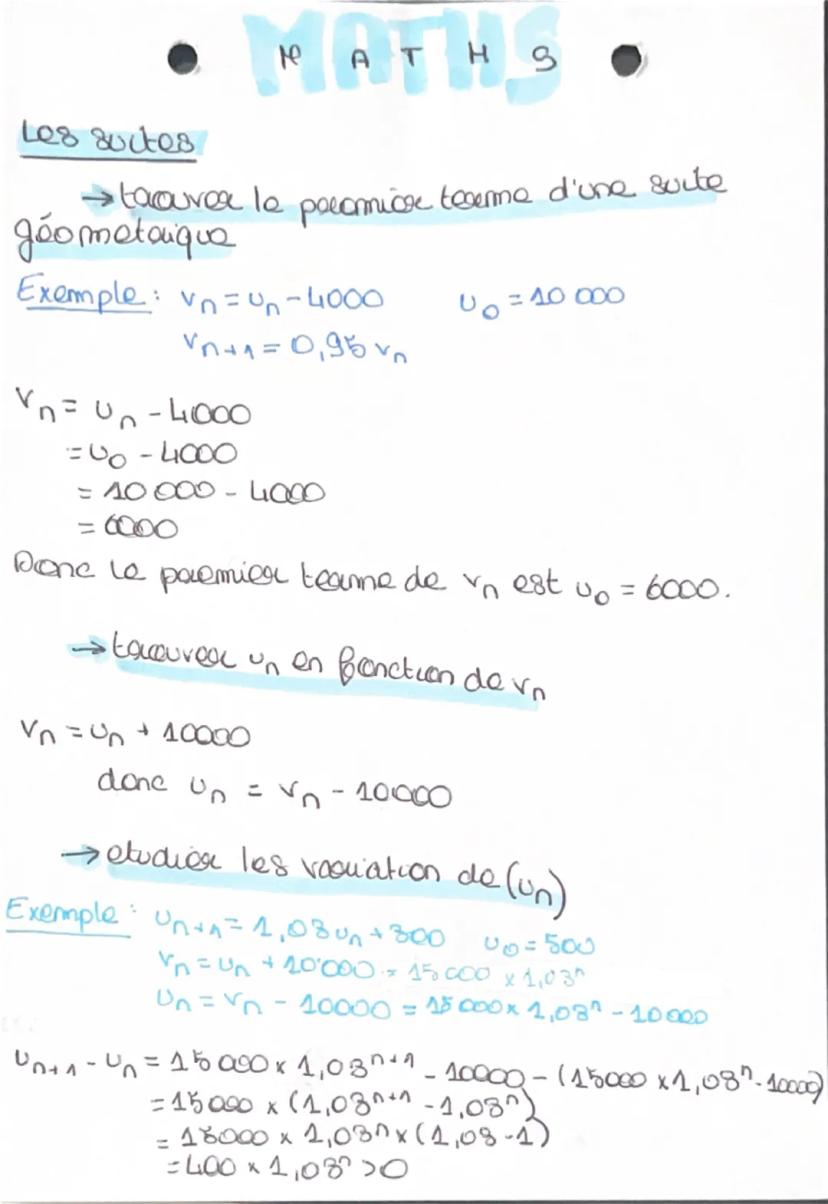 MATHS
Les suites
→ trouver le premier terme d'une suite
géométrique
Exemple : vn = un - 4000 u0 = 10 000
vn+1 = 0,95 vn
vn = un - 4000
= u0 - 4000
= 10 000 - 4000
= 6000
Donc le premier terme de vn est u0 = 6000.
→ trouver un en fonction de vn
vn = un + 10000
donc un = vn - 10000
→ etudier les variation de (un)
Exemple : un+1 = 1,03un + 300 u0 = 500
vn = un + 10000 = 15000 x 1,03ⁿ
un = vn - 10000 = 15000 x 1,03ⁿ - 10000
un+1 - un = 15000 x 1,03ⁿ⁺¹ - 10000 - (15000 x 1,03ⁿ - 10000)
= 15000 x (1,03ⁿ⁺¹ - 1,03ⁿ)
= 15000 x 1,03ⁿ x (1,03 - 1)
= 400 x 1,03ⁿ > 0